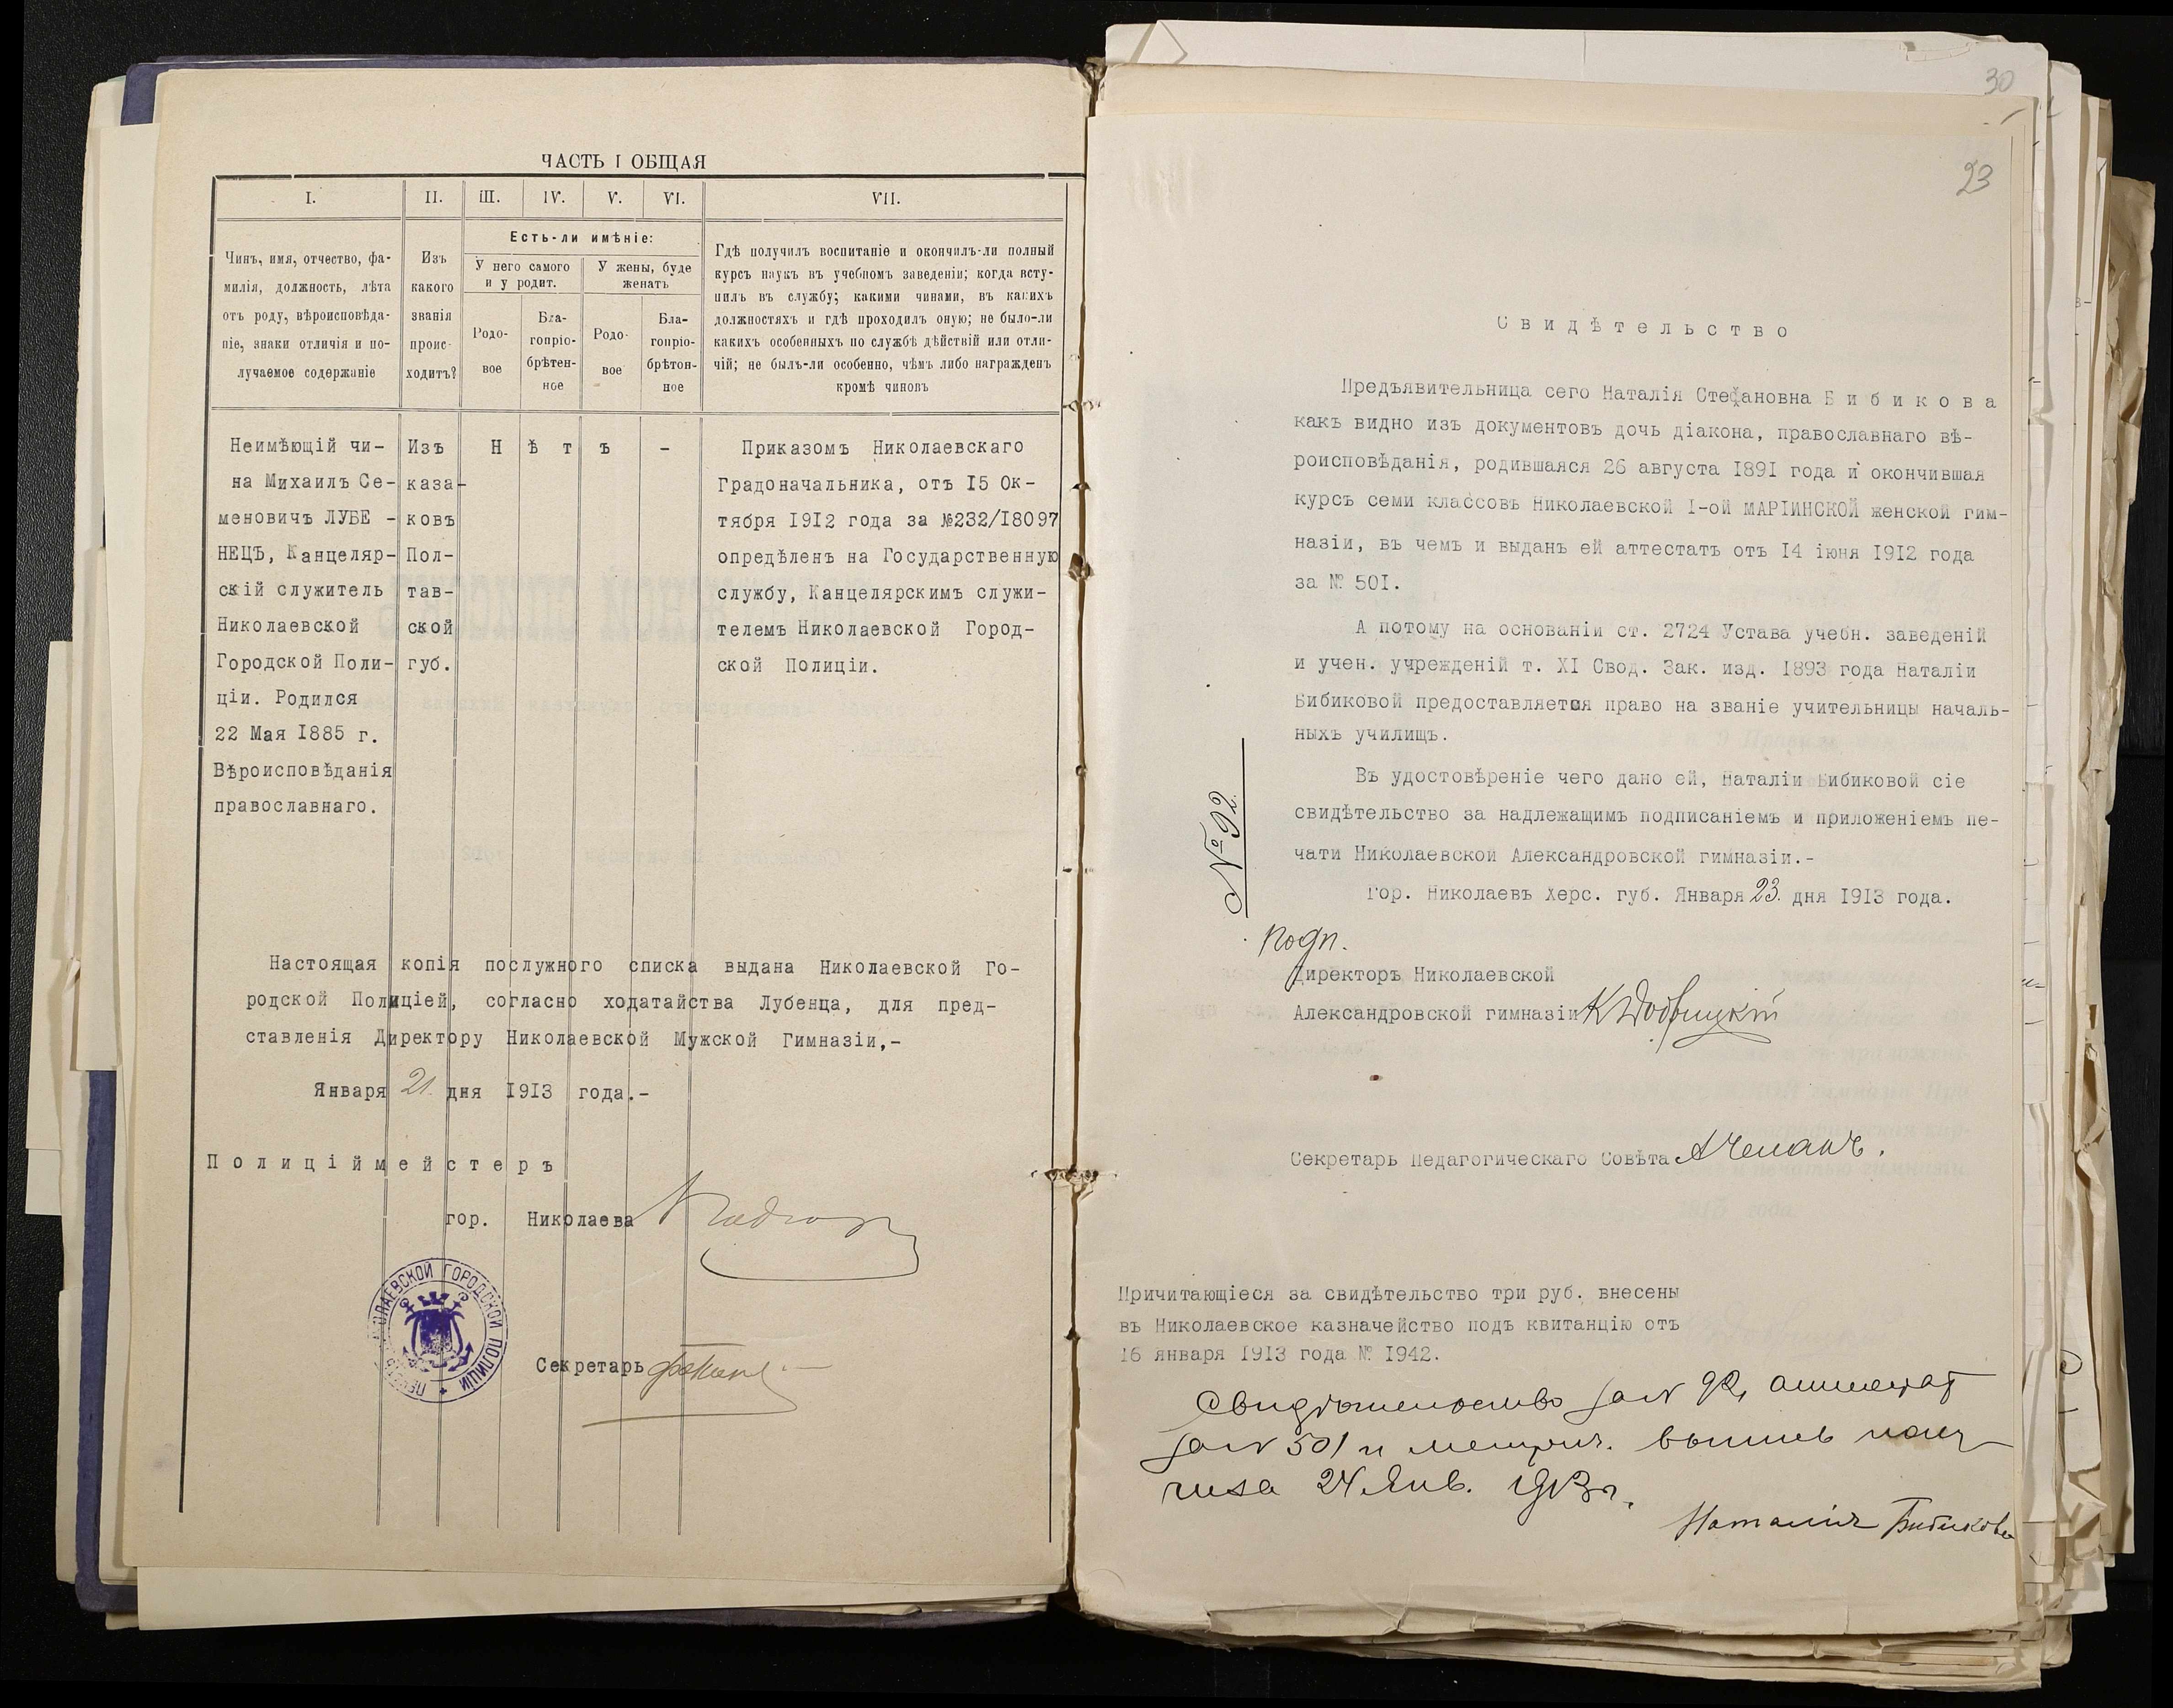 ЧАСТЬ I ОБЩАЯ
I.
II.
III.
IV.
V.
VI.
VII.
Чинъ, имя, отчество, фа-
милія, должность, лѣта
отъ роду, вѣроисповѣда-
ніе, знаки отличія и по-
лучаемое содержаніе
Изъ
какого
званія
проис-
ходитъ?
Есть-ли имѣніе:
У него самого
и у родит.
У жены, буде
женатъ
Родо-
вое
Бла-
гопріо-
брѣтен-
ное
Родо-
вое
Бла-
гопріо-
брѣтен-
ное
Гдѣ получилъ воспитаніе и окончилъ-ли полный
курсъ наукъ въ учебномъ заведеніи; когда всту-
пилъ въ службу; какими чинами, въ какихъ
должностяхъ и гдѣ проходилъ оную; не было-ли
какихъ особенныхъ по службѣ дѣйствій или отли-
чій; не былъ-ли особенно, чѣмъ либо награжденъ
кромѣ чиновъ
Неимѣющій чи-
на Михаилъ Се-
меновичъ ЛУБЕ -
НЕЦЪ, Канцеляр-
скій служитель
Николаевской
Городской Поли-
ціи. Родился
22 Мая 1885 г.
Вѣроисповѣданія
православнаго.
Изъ
каза-
ковъ
Пол-
тав-
ской
губ.
Н ѣ т ъ -
Приказомъ Николаевскаго
Градоначальника, отъ 15 Ок-
тября 1912 года за №232/18097
опредѣленъ на Государственную
службу, Канцелярскимъ служи-
телемъ Николаевской Город-
ской Полиціи.
Настоящая копія послужного списка выдана Николаевской Го-
родской Полиціей, согласно ходатайства Лубенца, для пред-
ставленія Директору Николаевской Мужской Гимназіи,-
Января 21 дня 1913 года.-
П о л и ц і й м е й с т е р ъ
гор. Николаева
НИКОЛАЕВСКОЙ ГОРОДСКОЙ ПОЛИЦІИ
Секретарь
30
23
С в и д ѣ т е л ь с т в о
Предъявительница сего Наталія Стефановна Б и б и к о в а
какъ видно изъ документовъ дочь діакона, православнаго вѣ-
роисповѣданія, родившаяся 26 августа 1891 года и окончившая
курсъ семи классовъ Николаевской 1-ой МАРІИНСКОЙ женской гим-
назіи, въ чемъ и выданъ ей аттестатъ отъ 14 іюня 1912 года
за № 501.
А потому на основаніи ст. 2724 Устава учебн. заведеній
и учен. учрежденій т. XI Свод. Зак. изд. 1893 года Наталіи
Бибиковой предоставляется право на званіе учительницы началь-
ныхъ училищъ.
Въ удостовѣреніе чего дано ей, Наталіи Бибиковой сіе
свидѣтельство за надлежащимъ подписаніемъ и приложеніемъ пе-
чати Николаевской Александровской гимназіи.-
Гор. Николаевъ Херс. губ. Января 23 дня 1913 года.
№ 92
подп.
Директоръ Николаевской
Александровской гимназіи
Секретарь Педагогическаго Совѣта
Причитающіеся за свидѣтельство три руб. внесены
въ Николаевское казначейство подъ квитанцію отъ
16 января 1913 года № 1942.
Свидѣтельство за № 92, аттестат
за № 501 и метрич. выпись полу
чила 24 Янв. 1913 г.
Наталія Бибикова